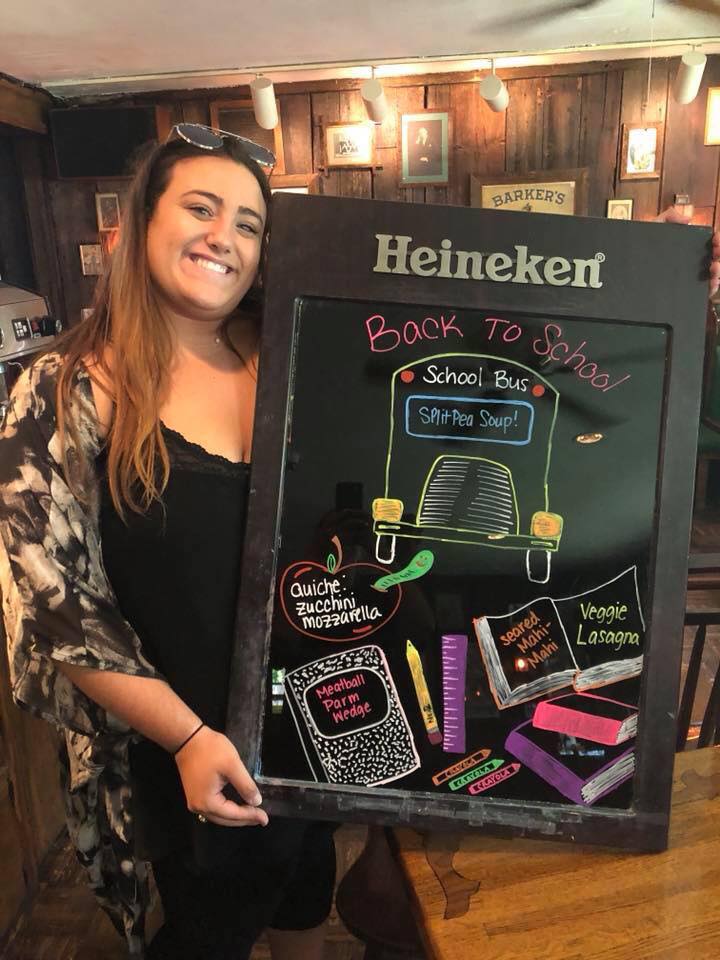 BARKER'S
Heineken®
Back To School
School Bus
Split Pea Soup!
Quiche:
zucchini
mozzarella
Seared
Mahi-
Mahi
Veggie
Lasagna
Meatball
Parm
Wedge
CRAYOLA
CRAYOLA
CRAYOLA